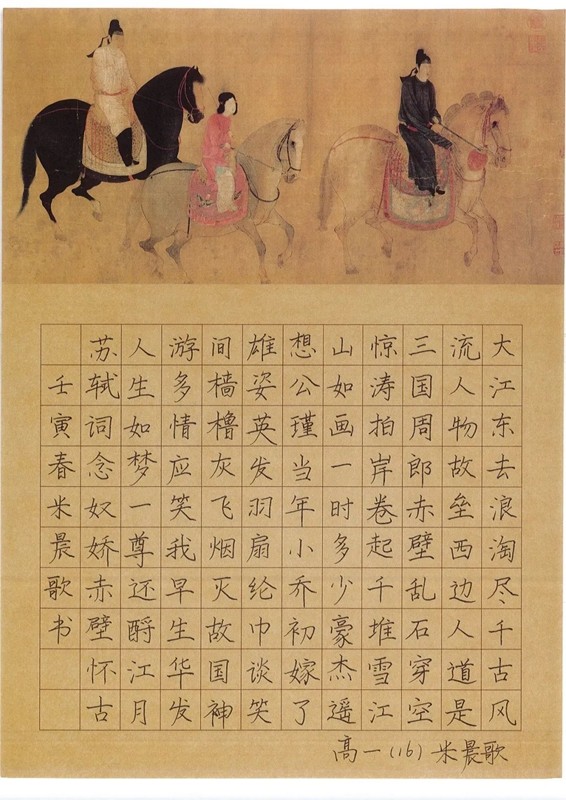 大江东去浪淘尽千古风
流人物故垒西边人道是
三国周郎赤壁乱石穿空
惊涛拍岸卷起千堆雪江
山如画一时多少豪杰遥
想公瑾当年小乔初嫁了
雄姿英发羽扇纶巾谈笑
间樯橹灰飞烟灭故国神
游多情应笑我早生华发
人生如梦一尊还酹江月
苏轼词念奴娇赤壁怀古
壬寅春米晨歌书
高一(16)米晨歌